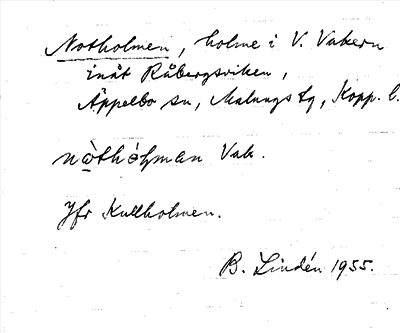 Notholmen, holme i V. Vakern
inåt Råbergsviken,
Äppelbo sn, Malungs tg, Kopp. l.
nòthólman Vak.
Jfr Kullholmen.
B. Lindén 1955.